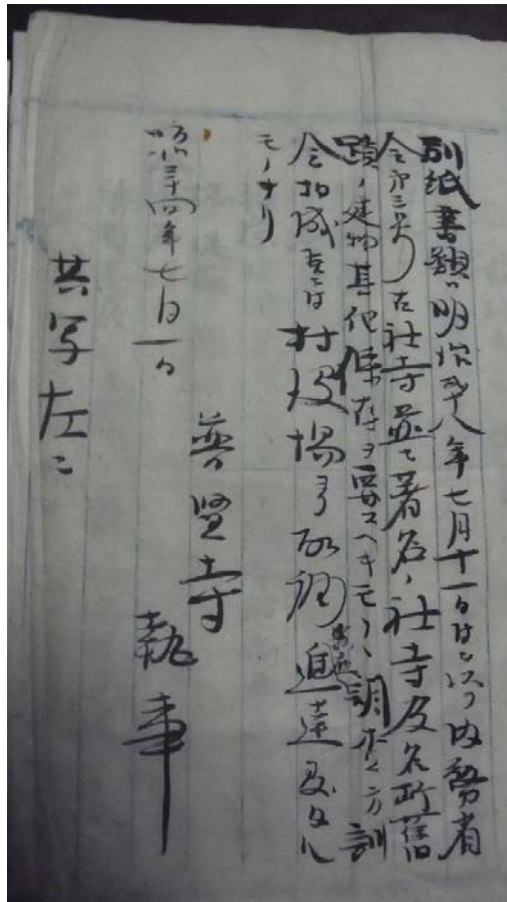 別紙書類ハ明治廿八年七月十一日付ヲ以テ内務省
令第三号古社寺並ニ著名ノ社寺及名所旧
蹟ノ建物其他保存ヲ要スヘキモノノ調査方訓
令
村役場ヨリ 調 進達及タル
モノナリ
明治三十四年七月一日
普賢寺
執事
其写左ニ